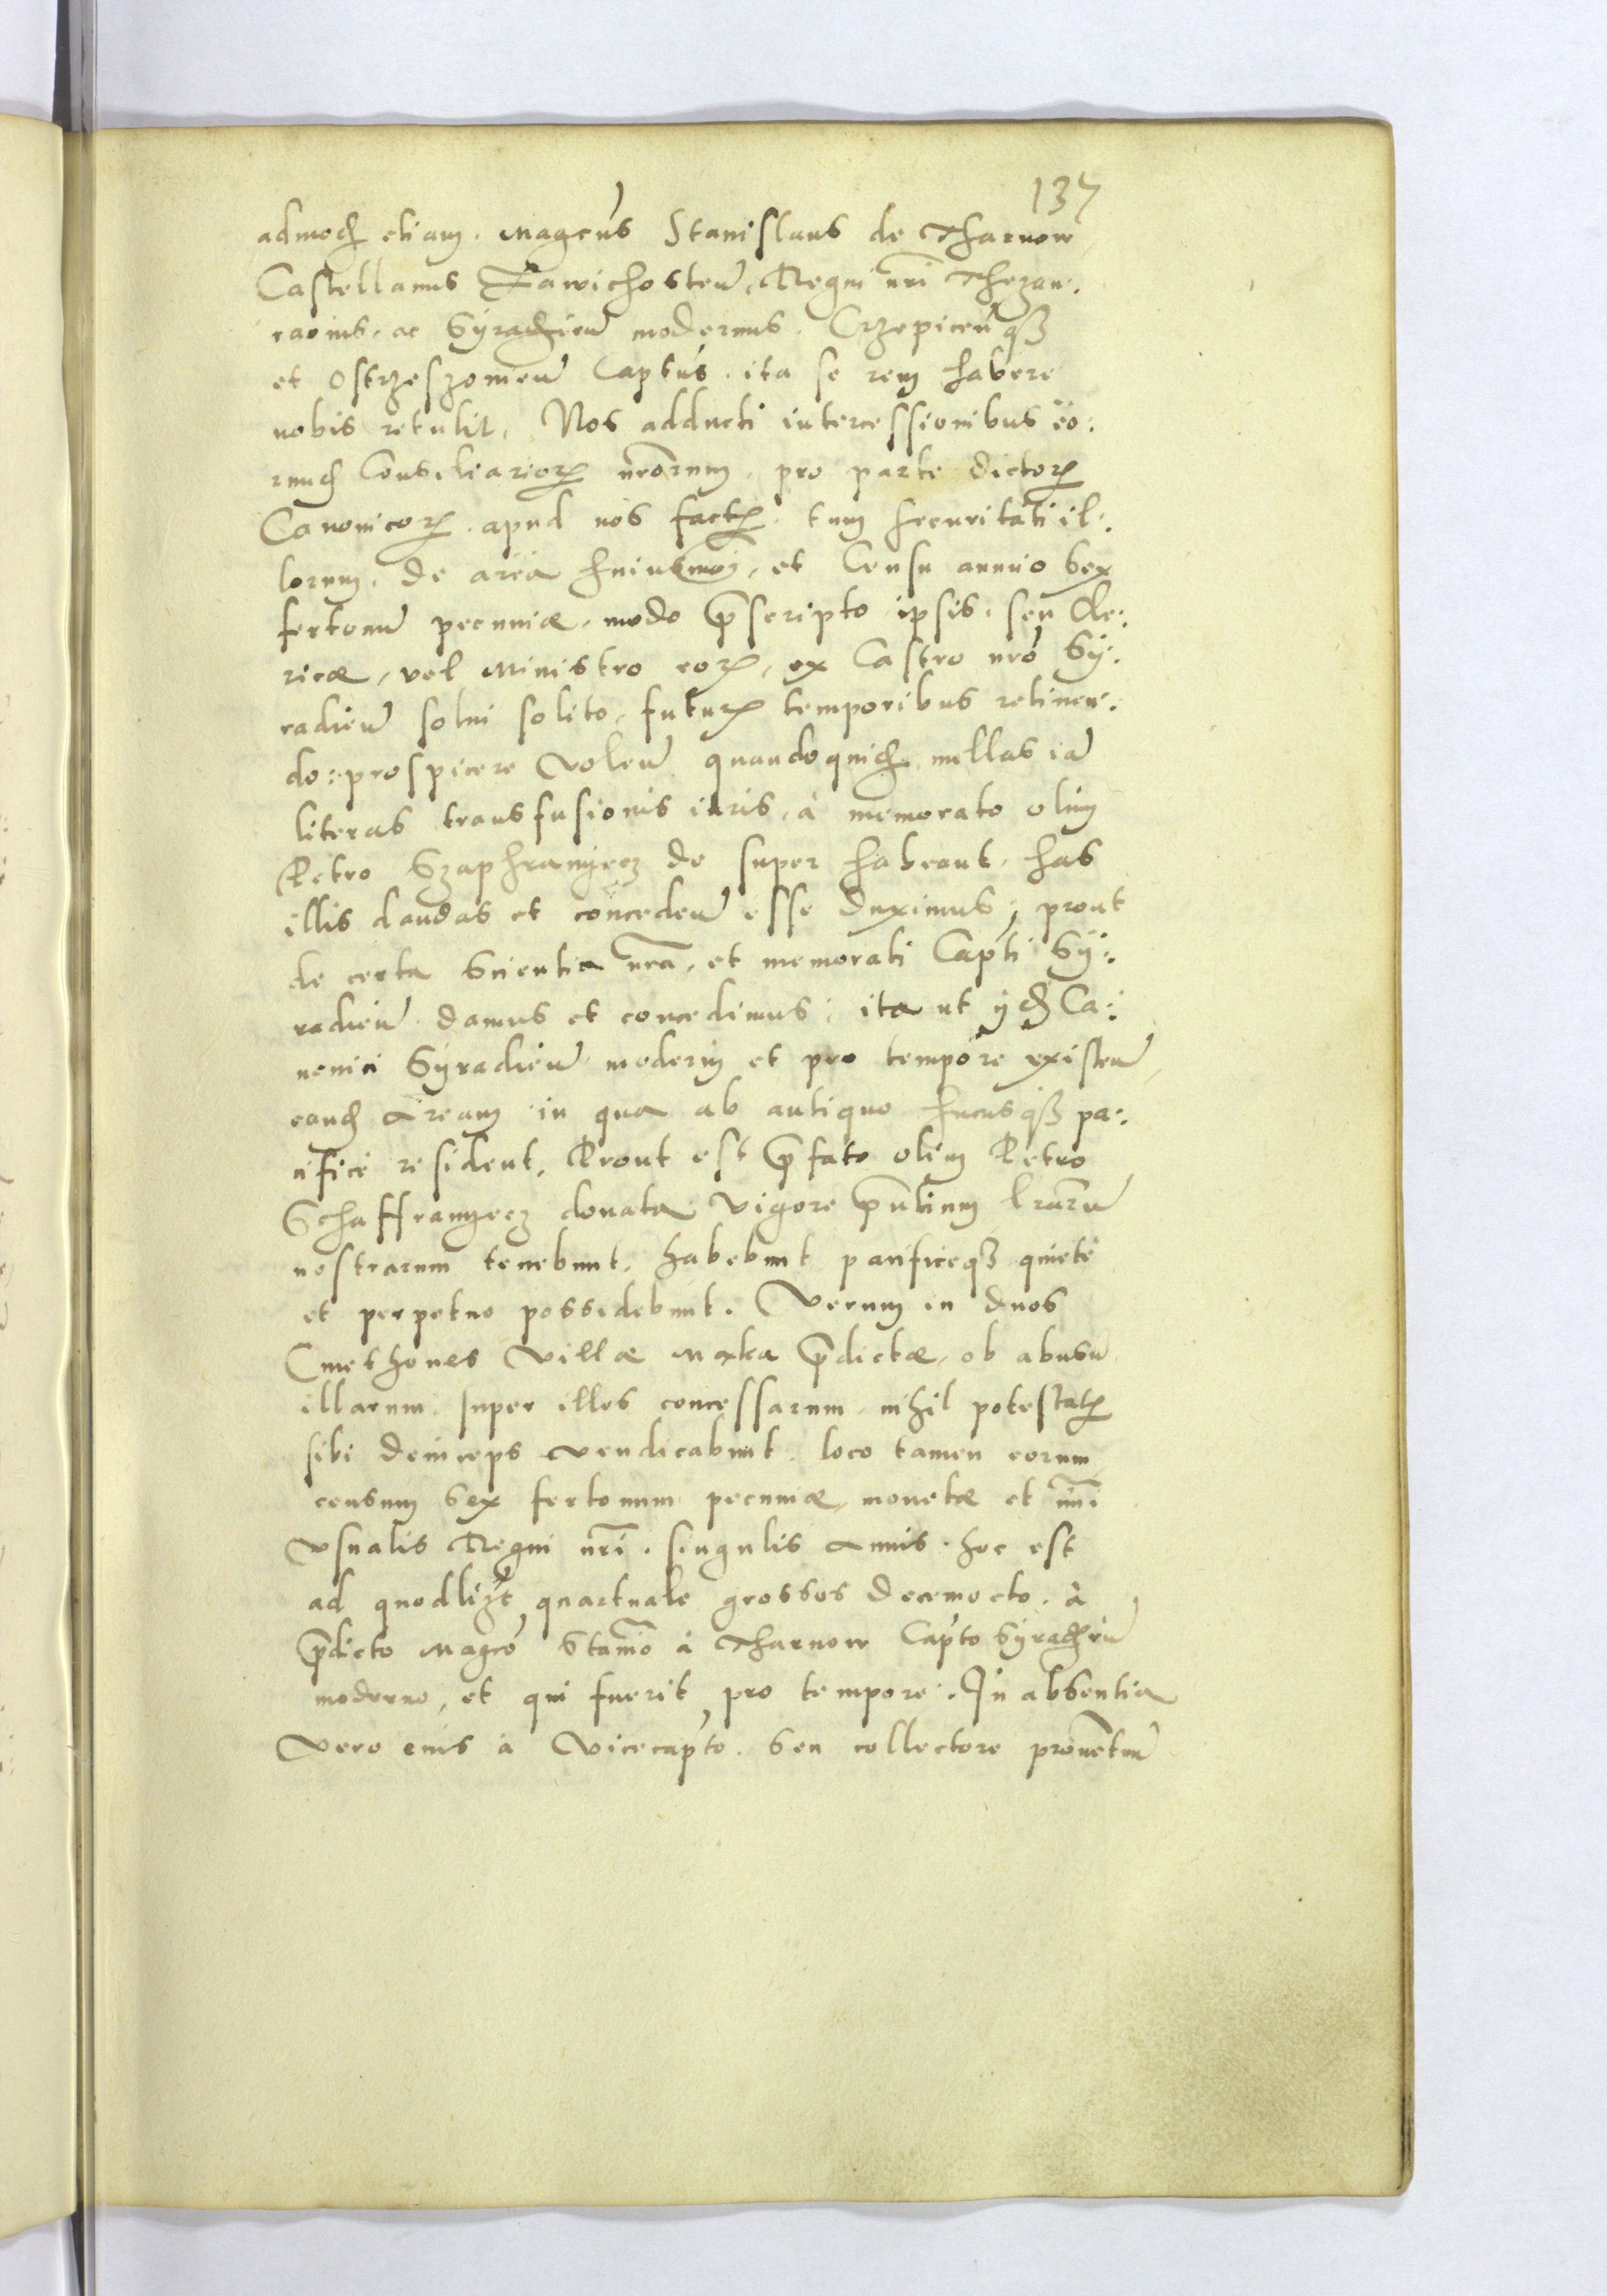 137
admod etiam. Magcus Stanislaus de Tharnow
Castellanus Zawichosten, Regni nri Thezau:
rarius, ac Syradien modernus. Crzepicenqz
et Ostrzeszomien Captus. ita se rem habere
nobis retulit. Nos adducti intercessionibus eo:
rund Consiliarior nrorum, pro parte dictor
Canonicor. apud nos fact. tum securitati il:
lorum, de area , et Censu annuo sex
fertonu pecuniæ, modo pscripto ipsis, seu Cle:
ricæ, vel Ministro eor, ex Castro nro Sy:
radien solui solito, futur temporibus retinen:
do: prospicere Volen quandoquid nullas ia
literas transfusionis iuris, à memorato olim
Petro Szaphranyecz de super habeant, has
illis dandas et conceden esse duximus; prout
de certa Scientia nra, et memorati Capti Sy:
radien damus et concedimus; ita ut yd Ca:
nonici Syradien moderni et pro tempore existen
eand Aream in qua ab antiquo hucusqz pa:
cifice resident. Prout est pfato olim Petro
Schaffranyecz donata Vigore pntium lraru
nostrarum tenebunt, habebunt pacificeqz quiete
et perpetuo possidebunt. Verum in duos
Cmethones Villæ Maka pdictæ, ob abusu
illarum super illos concessarum, nihil potestat
sibi deinceps vendicabunt, loco tamen eorum
censum sex fertonum pecuniæ, monetæ et nui
Vsualis Regni nri. singulis Annis. hoc est
ad quodlizt quartuale grossos decemocto. à
pdicto Magco Stanio à Tharnow Capto Syradien
moderno, et qui fuerit pro tempore. In absentia
Vero eius à Vicecapto. Seu collectore prouetuu